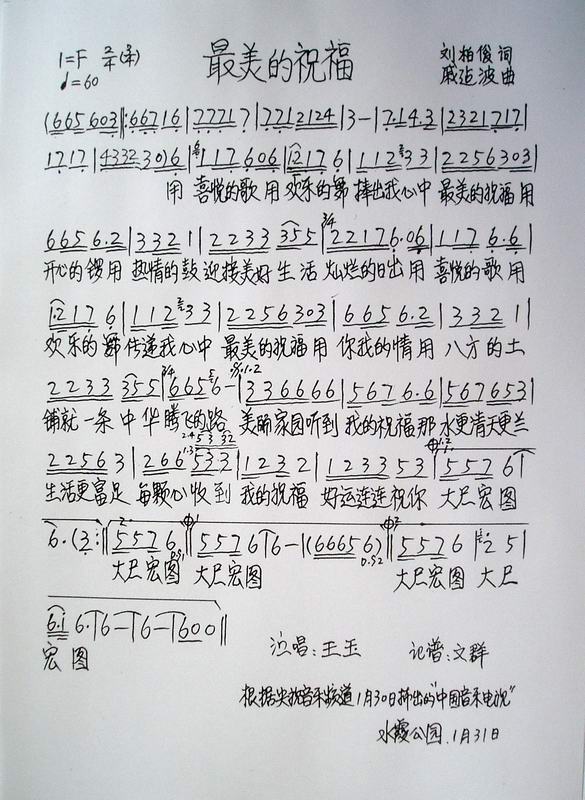 1=F 2/4(3/4) 最美的祝福 刘柏俊 词
♩=60 戚建波 曲
(665 603‖:667 16|7771 7|771 2124|3-|7.14.3|2321 717|
1717|4332 3016|117 606|1217 6|112 33|2256 303|
用 喜悦的歌 用 欢乐的舞 捧出我心中 最美的祝福 用
665 6.2|332 1|2233 355|3/4 22176.06|117 6.6|
开心的锣 用 热情的鼓 迎接美好 生 活 灿烂的日出 用 喜悦的歌 用
1217 6|112 33|2256 303|665 6.2|332 1|
欢乐的 舞 传递我心中 最美的祝福 用 你我的情 用 八方的土
2233 355|3/4 6656 6-|336666|567 6.6|567653|
铺就 一条 中 华 腾飞的路 美丽家园听到 我的祝福 那 水更清天更兰
2256 3|266 533|123 2|1233 53|557 6|
生活更富足 每颗心收到 我的祝福 好运连连祝你 大展宏图
6.(3:‖557 6|557 6|6-|(6665 6)‖557 6|2 5|
大尺宏图 大尺宏图 大尺宏图 大尺
6.1 6.|6-|6-|600‖
宏 图
演唱:王玉 记谱:文群
根据央视音乐频道1月30日播出的"中国音乐电视"
水霞公园.1月31日